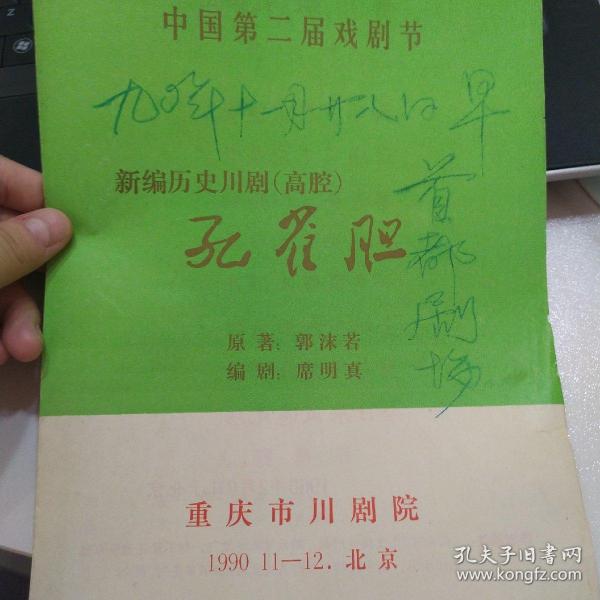 中国第二届戏剧节
九〇年十一月廿八日早
首都剧场
新编历史川剧(高腔)
孔雀胆
原著:郭沫若
编剧:席明真
重庆市川剧院
1990 11—12. 北京
孔夫子旧书网
www.kongfz.com